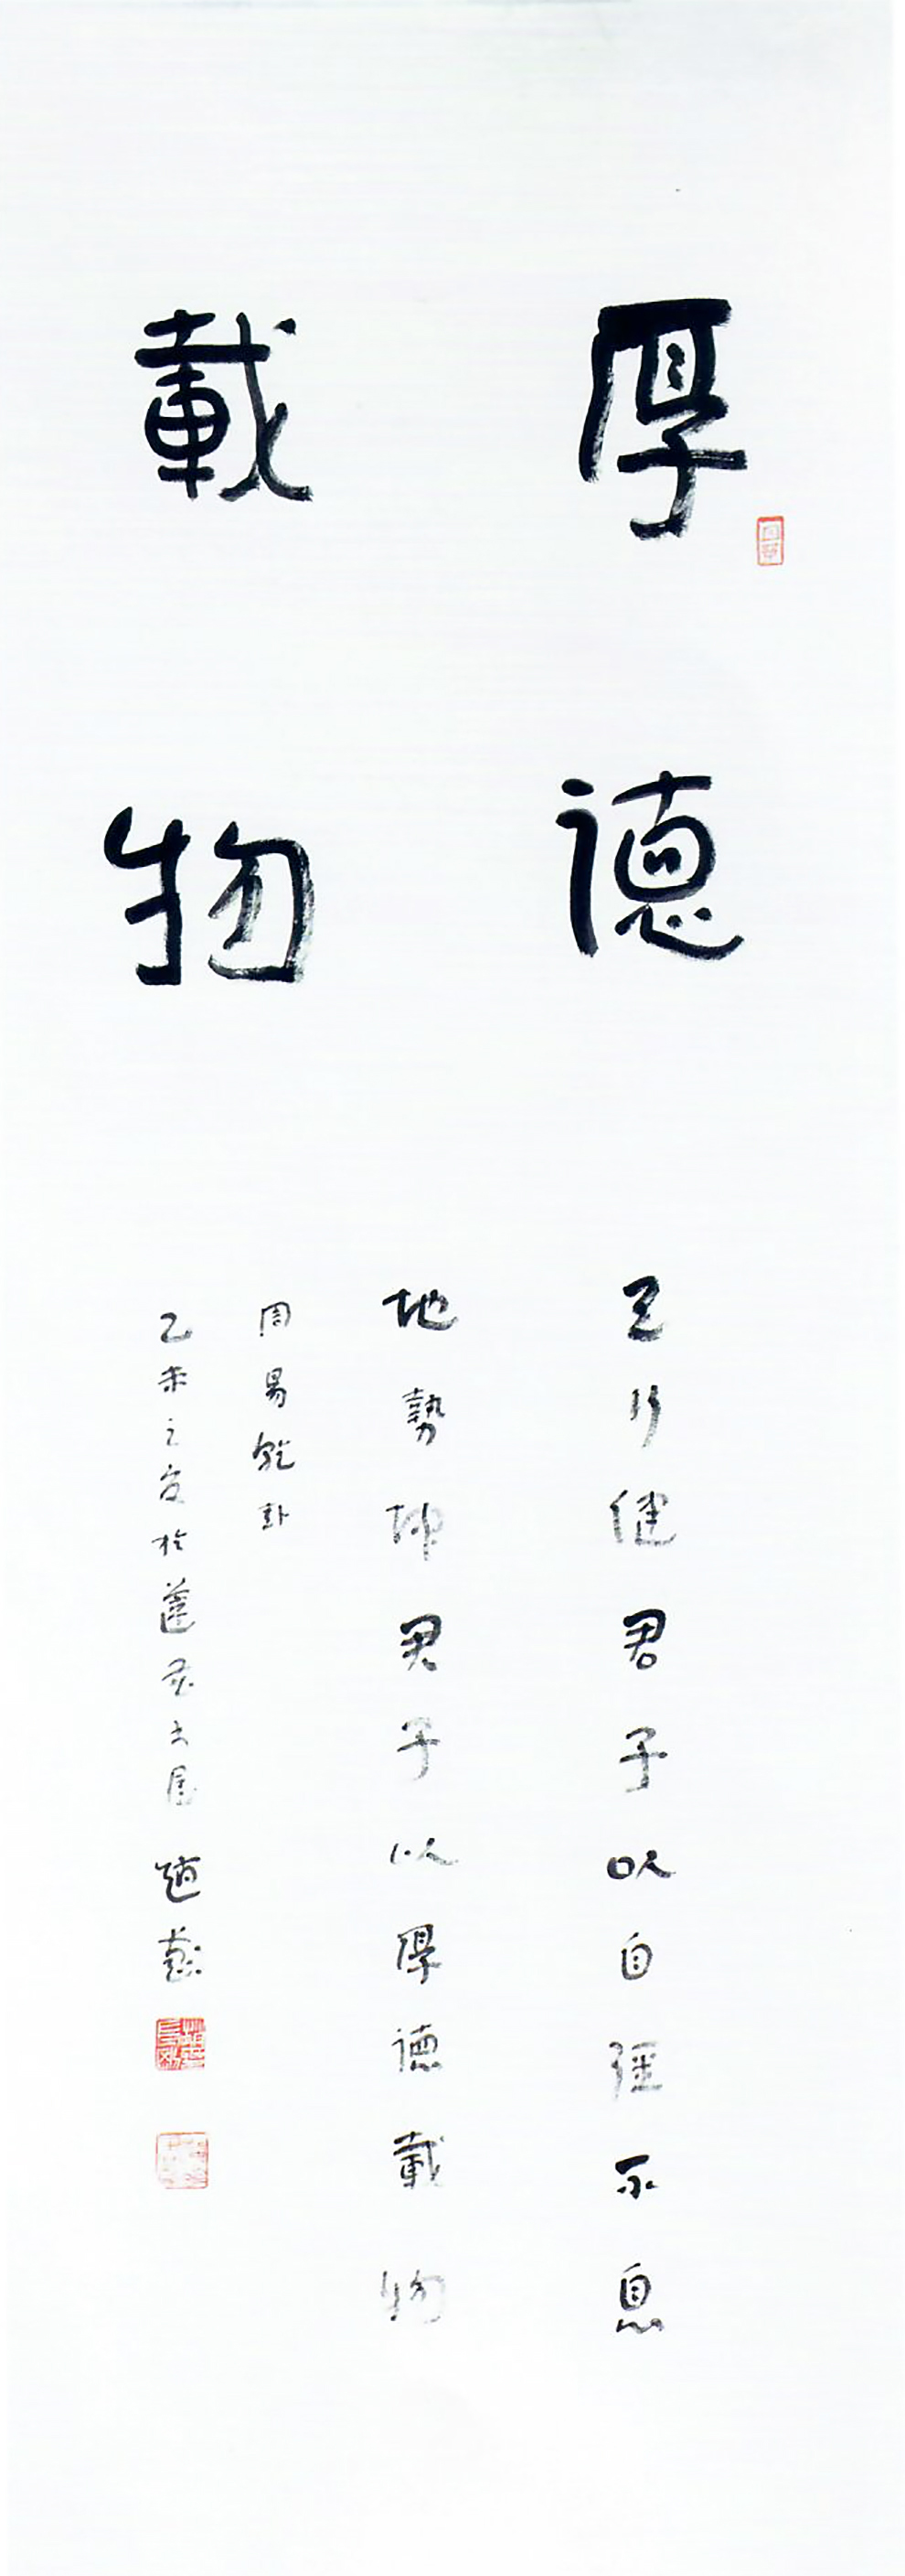 厚德
載物
天行健君子以自強不息
地勢坤君子以厚德載物
周易乾卦
乙未之夏於蓮居士居 趙